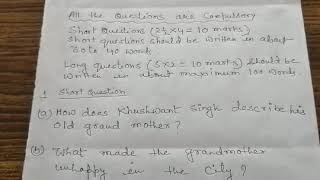 All the Questions are Compulsory
Short Questions (2½×4 = 10 marks)
Short questions should be written in about
30 to 40 words
Long questions (5×2 = 10 marks) should be
written in about maximum 100 words.
1 Short Question
(a) How does Khushwant Singh describe his
old grand mother?
(b) What made the grandmother
unhappy in the city?